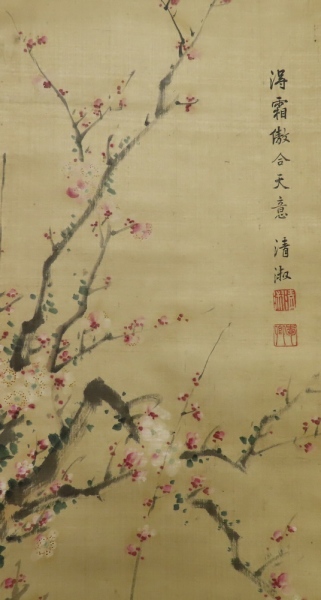 得霜傲合天意 清淑